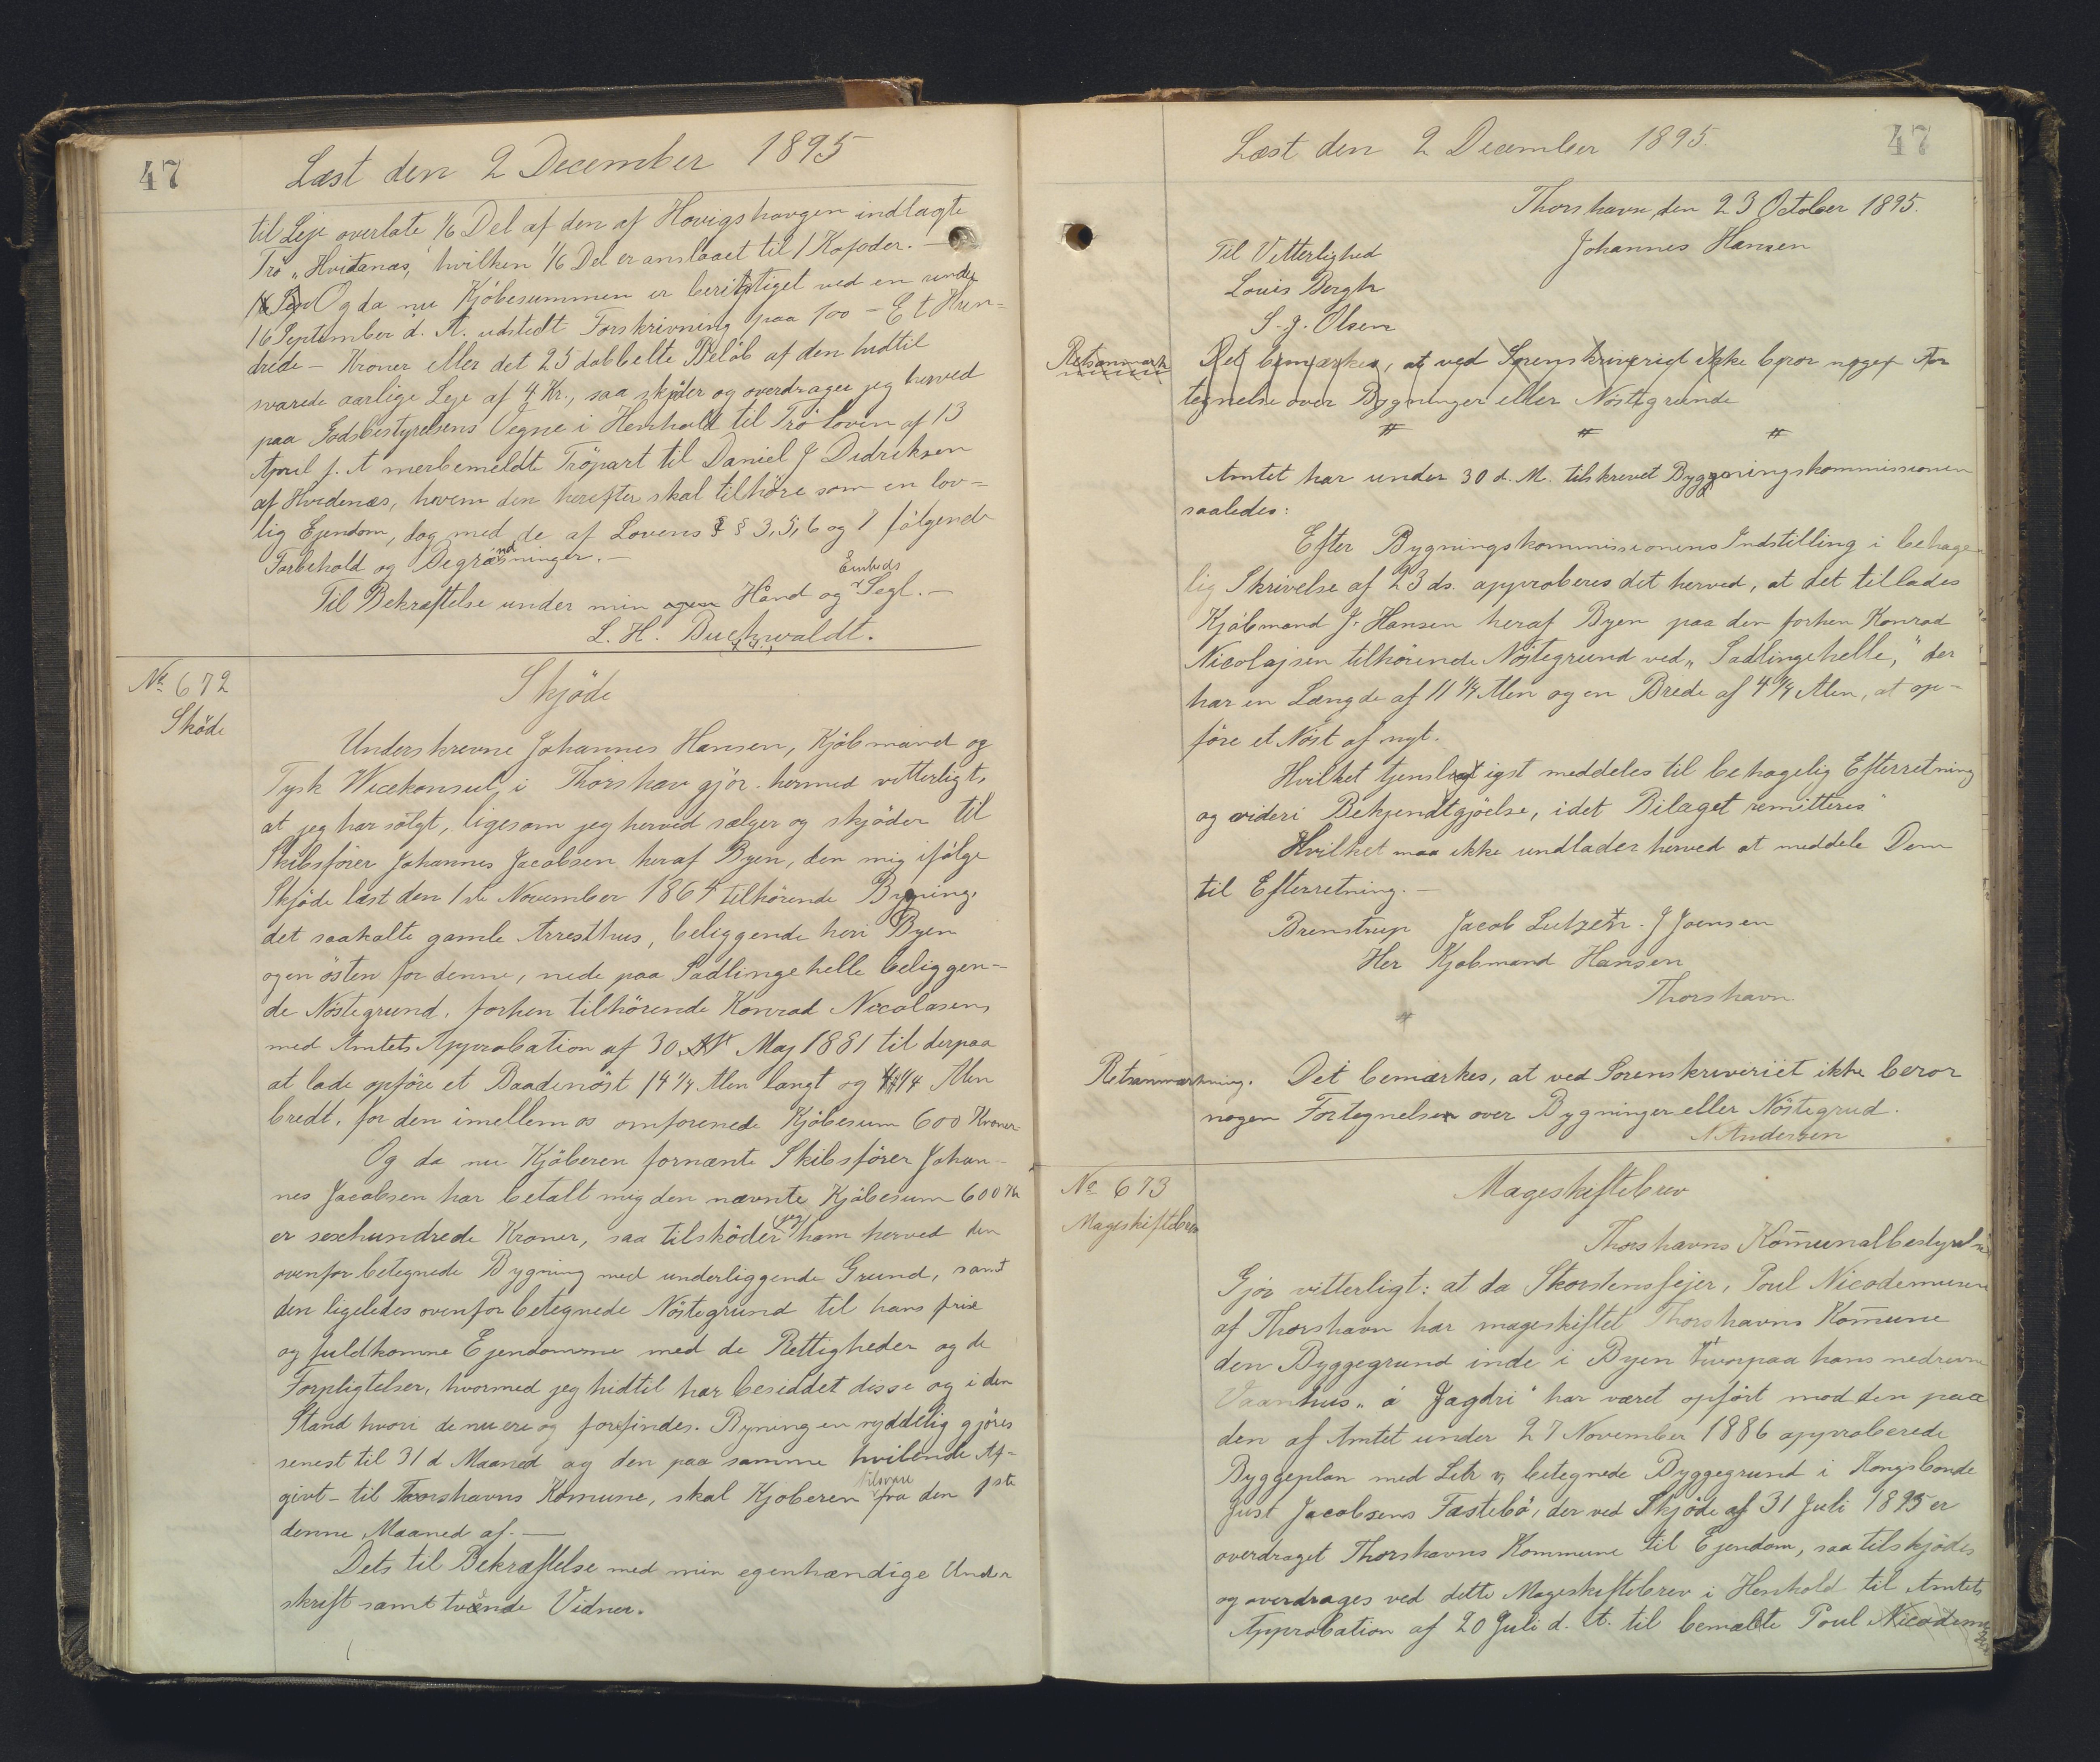 47
Læst den 2 December 1895
til Leje overlate 1/6 Del af den af Hovigshavgen indlagte
Trö „Hvitanæs, hvilken 1/6 Del er anslaaet til 1 Kofoder. —
Og da nu Kjöbesummen er berigtiget ved en under
16 September d. A. udstedt Forskrivning paa 100 — Et Hun-
drede — Kroner eller det 25 dobbelte Belöb af den hidtil
svarede aarlige Leje af 4 Kr., saa skjöder og overdrager jeg herved
paa Godsbestyrelsens Vegne i Henhold til Trö loven af 13
April f. A merbemeldte Tröpart til Daniel J Didriksen
af Hvidenæs, hvem den herefter skal tilhöre som en lov-
lig Ejendom, dog med de af Lovens § § 3, 5, 6 og 7 fölgende
Forbehold og Begrændsninger. —
Til Bekræftelse under min Hånd og Embeds Segl. —
L. H. Buchwaldt.
No 672
Sköde
Skjöde
Underskrevne Johannes Hansen, Kjöbmand og
Tysk Wicekonsul, i Thorshav gjör hermed vitterligt,
at jeg har solgt, ligesom jeg herved sælger og skjöder til
Skibsförer Johannes Jacobsen heraf Byen, den mig ifölge
Skjöde læst den 1ste November 1864 tilhörende Bygning,
det saakalte gamle Arresthus, beliggende heri Byen
og en östen for denne, nede paa Sadlingehelle beliggen-
de Nöstegrund, forhen tilhörende Konrad Nicolasen,
med Amtets Approbation af 30 Maj 1881 til derpaa
at lade opföre et Baadenöst 14 1/4 Alen langt og 4 1/4 Alen
bredt, for den imellem os omforenede Kjöbesum 600 Kroner
Og da nu Kjöberen fornænte Skibsförer Johan-
nes Jacobsen har betalt mig den nævnte Kjöbesum 600 Kr
er sexhundrede Kroner, saa tilsköder jeg ham herved den
ovenfor betegnede Bygning med underliggende Grund, samt
den ligeledes ovenfor betegnede Nöstegrund til hans frie
og fuldkomne Ejendomme med de Rettigheder og de
Forpligtelser, hvormed jeg hidtil har besiddet disse og i den
Stand hvori de nu ere og forefindes. Byningen ryddelig gjöres
senest til 31 d Maaned og den paa samme hvilende Af-
givt — til Thorshavns Komune, skal Kjöberen tilsvare fra den 1ste
denne Maaned af. —
Dets til Bekræftelse med min egenhændige Under
skrift samt tvende Vidner.
Læst den 2 December 1895.
47
Thorshavn, den 23 October 1895.
Til Vitterlighed
Johannes Hansen
Louis Bergh
S. J. Olsen
Retsanmærk
Det bemærkes, at ved Sorenskriveriet ikke beror nogen For
tegnelse over Bygninger eller Nöstegrunde
Amtet har under 30 d. M. tilskrevet Byggningskommissionen
saaledes:
Efter Bygningskommissionens Indstilling i behage-
lig Skrivelse af 23 ds. approberes det herved, at det tillades
Kjöbmand J. Hansen heraf Byen paa den forhen Konrad
Nicolajsen tilhörende Nöjtegrund ved „Sadlingehelle," der
har en Længde af 11 1/4 Alen og en Brede af 4 1/4 Alen, at op-
före et Nöst af nyt.
Hvilket tjenstligst meddeles til behagelig Efterretning
og videri Bekjendtgjöelse, idet Bilaget remitteres"
Hvilket maa ikke undlades herved at meddele Dem
til Efterretning. —
Brenstrup Jacob Lutzen. J Joensen
Her Kjøbmand Hansen
Thorshavn.
Retsanmærkning.
Det bemærkes, at ved Sorenskriveriet ikke beror
nogen Fortegnelse over Bygninger eller Nöstegrud.
N Andersen
No 673
Mageskiftebrev
Mageskiftebrev
Thorshavns Komunalbestyrelse
Gjör vitterligt: at da Skorstensfejer, Poul Nicodemusen
af Thorshavn har mageskiftet Thorshavns Komune
den Byggegrund inde i Byen hvorpaa hans nedrevne
Vaanhus „á Jagdri" har været opfört mod den paa
den af Amtet under 27 November 1886 approberede
Byggeplan med Litr v, betegnede Byggegrund i Kongsbonde
Just Jacobsens Fæstebö, der ved Skjöde af 31 Juli 1895 er
overdraget Thorshavns Kommune til Ejendom, saa tilskjödes
og overdrages ved dette Mageskiftebrev i Henhold til Amtets
Approbation af 20 Juli d. A. til bemælte Poul Nicodemusen